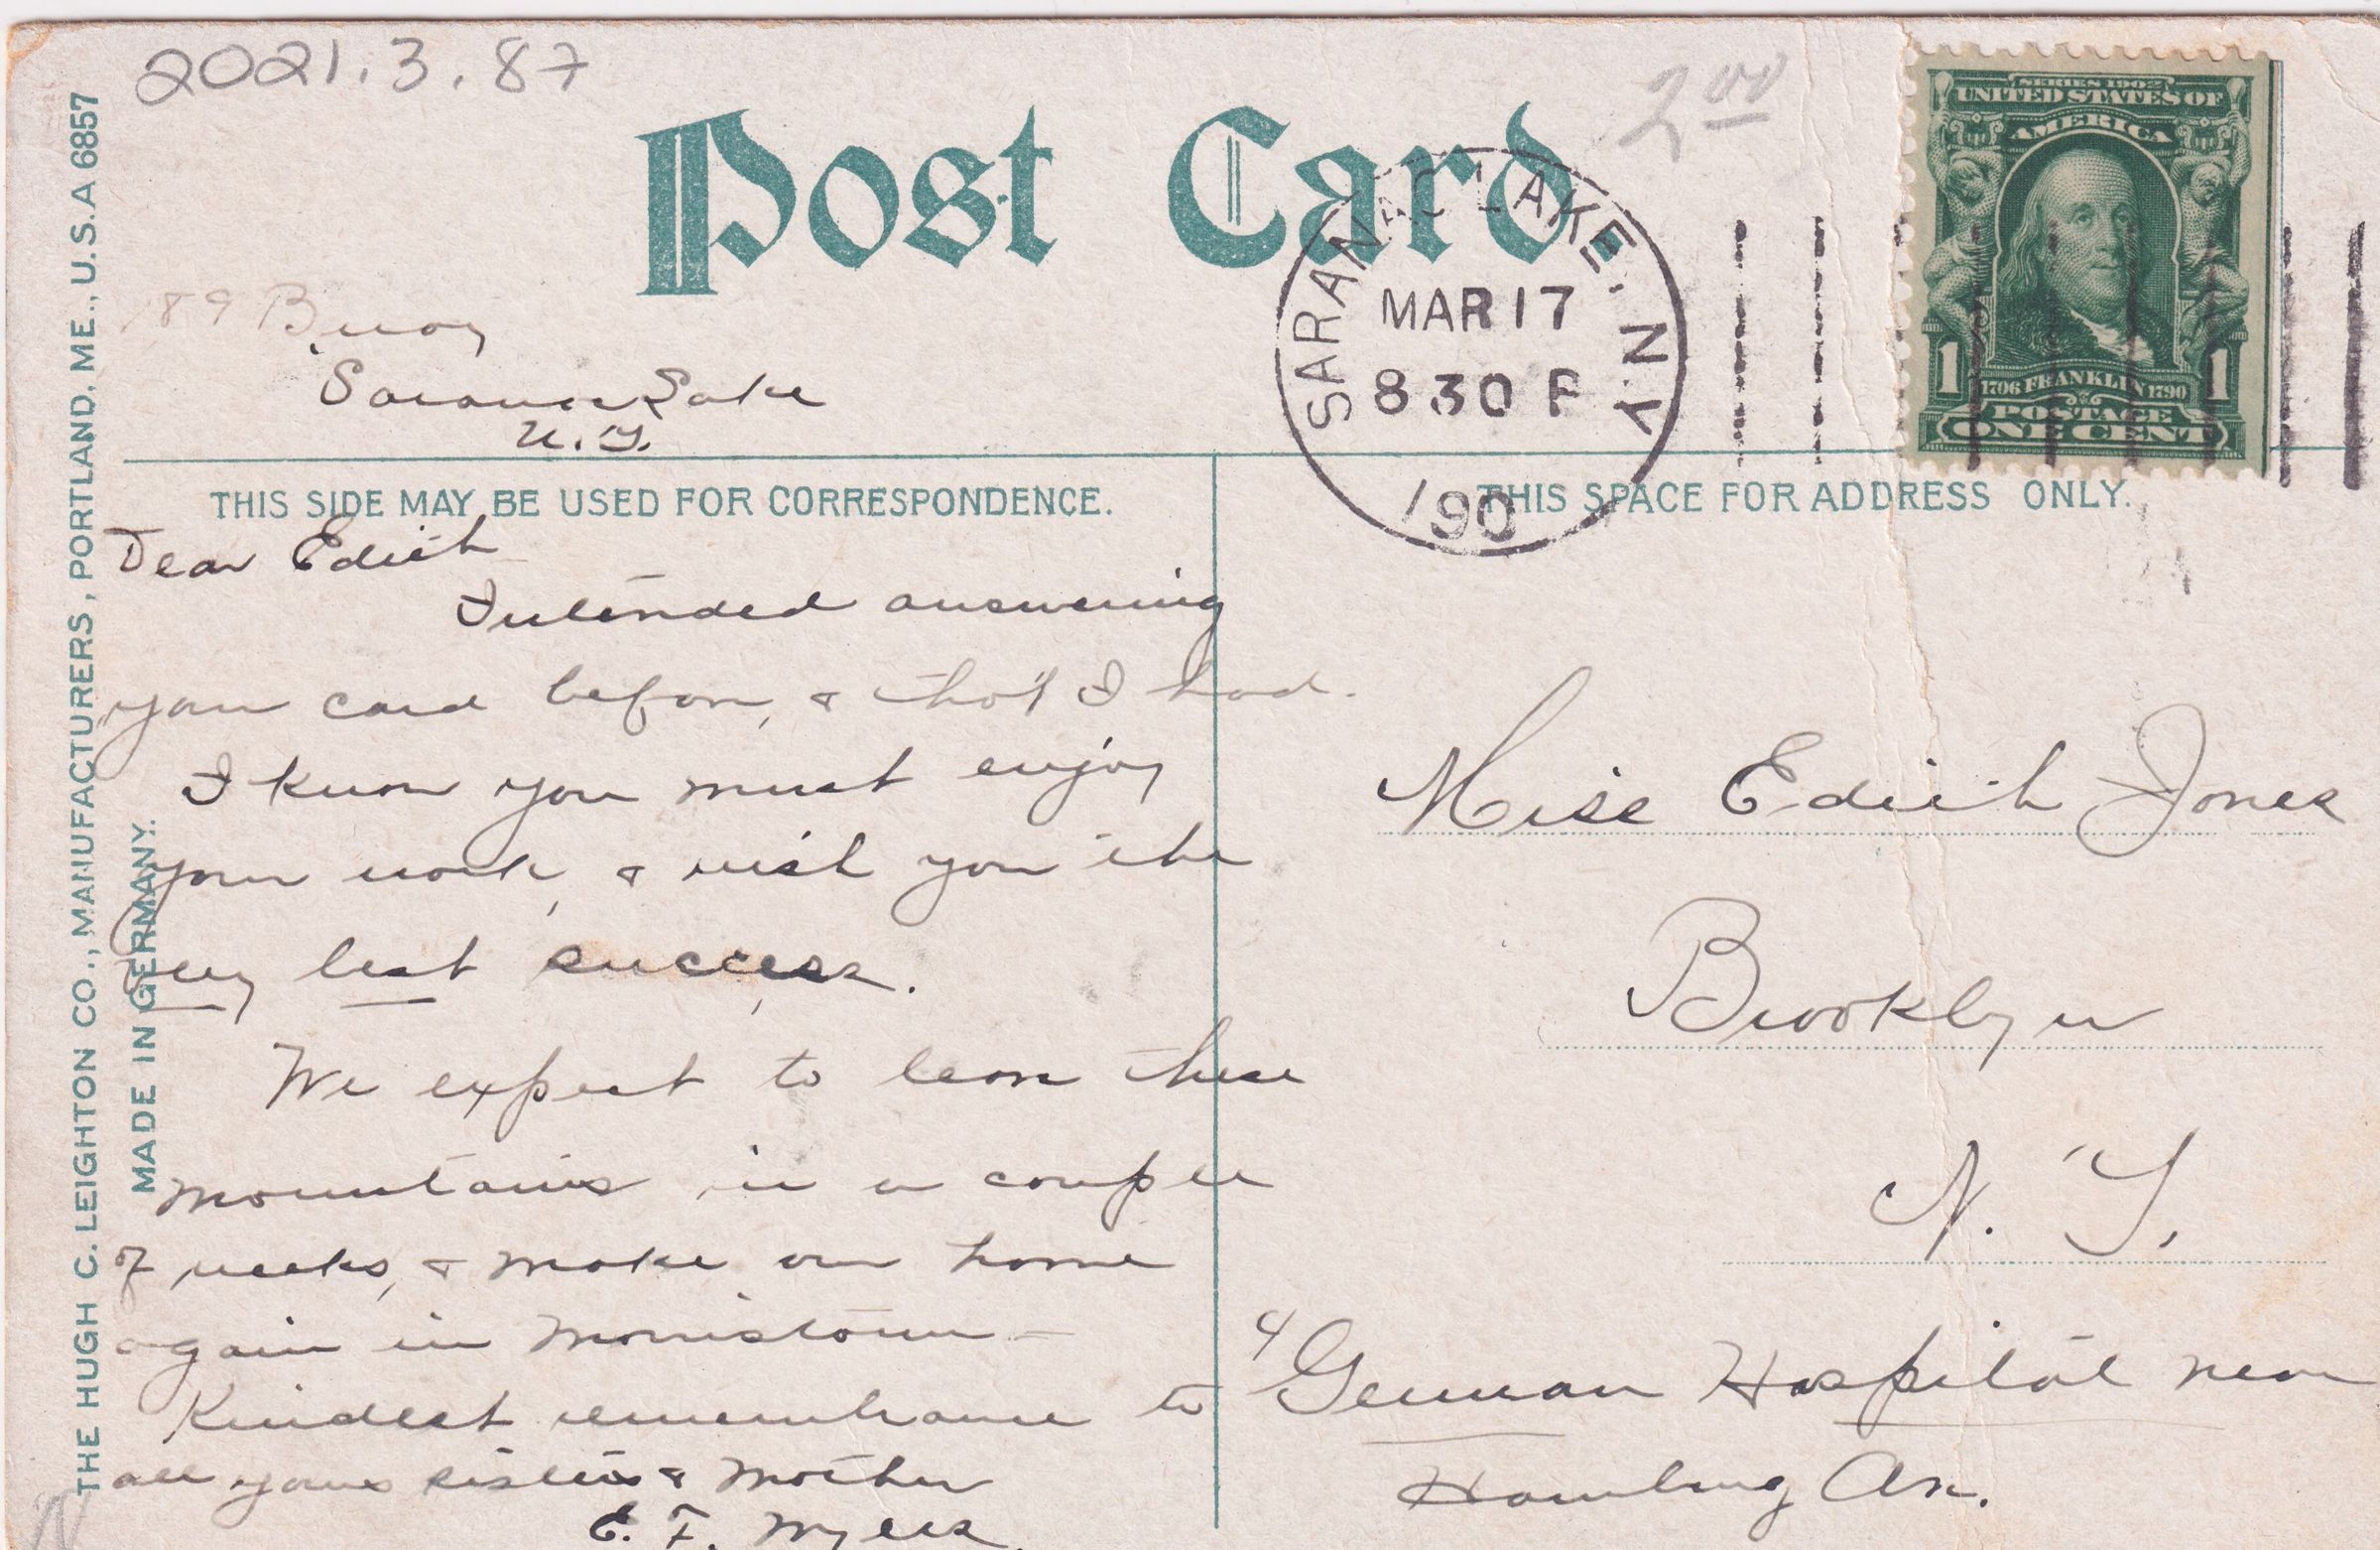 2021.3.87
Post Card
2 00
SERIES 1902
UNITED STATES OF
AMERICA
1 1
1706 FRANKLIN 1790
POSTAGE
ONE CENT
SARANAC LAKE, N.Y.
MAR 17
8 30 P
190
89
Saranac Lake
N.Y.
THIS SIDE MAY BE USED FOR CORRESPONDENCE.
Dear Edith
Intended answering
your card before, & tho't I had.
I know you must enjoy
your work, & wish you the
very best success.
We expect to leave these
mountains in a couple
of weeks, & make our home
again in Morristown —
Kindest remembrance to
all your sisters & Mother
E. F. Myers.
THIS SPACE FOR ADDRESS ONLY.
Miss Edith Jones
Brooklyn
N. Y.
German Hospital near
Hamburg Av.
THE HUGH C. LEIGHTON CO., MANUFACTURERS, PORTLAND, ME., U.S.A 6857
MADE IN GERMANY.